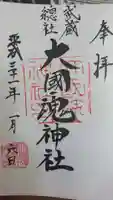 奉拝
武蔵
總社
大國魂神社
平成三十一年一月六日